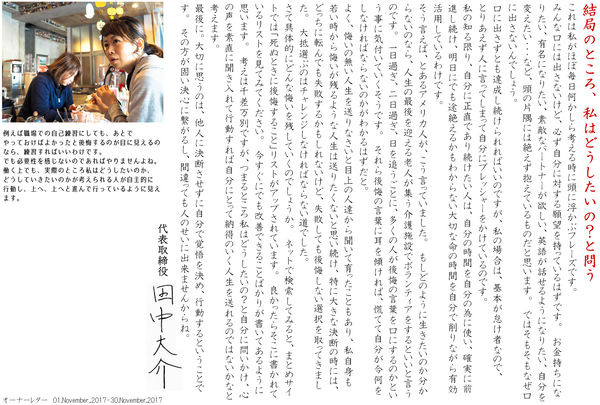 結局のところ、私はどうしたいの？と問う
これは私がほぼ毎日何かしら考える時に頭に浮かぶフレーズです。
みんな口には出さないけど、必ず自分に対する願望を持っているはずです。　お金持ちにな
りたい、有名になりたい、素敵なパートナーが欲しい、英語が話せるようになりたい、自分を
変えたい・・など、頭の片隅には絶えず抱えているものだと思います。　ではそもそもなぜ口
に出さないんでしょう。
口に出さずとも達成し続けられればいいのですが、私の場合は、基本が怠け者なので、
とりあえず人に言ってしまって自分にプレッシャーをかけているのです。
私の知る限り、自分に正直であり続けたい人は、自分の時間を自分の為に使い、確実に前
進し続け、明日にでも途絶えるかもわからない大切な命の時間を自分で削りながら有効
活用しているわけです。
そう言えば、とあるアメリカ人が、こう言っていました。　もしどのように生きたいのか分か
らないのなら、人生の最後を迎える老人が集う介護施設でボランティアをするといいと言う
のです。　一日過ぎ、二日過ぎ、日を追うごとに、多くの人が後悔の言葉を口にするのかとい
う事に気付いていくそうです。　それら後悔の言葉に耳を傾ければ、慌てて自分が今何を
しなければならないのかがわかるはずだと。
よく、悔いの無い人生を送りなさいと目上の人達から聞いて育ったこともあり、私自身も
若い時から悔いが残るような人生は送りたくないと思い続け、特に大きな決断の時には、
どちらに転んでも失敗するかもしれないけど、失敗しても後悔しない選択を取ってきまし
た。　大抵選ぶのはチャレンジしなければならない道でした。
さて具体的にどんな悔いを残していくのでしょうか。　ネットで検索してみると、まとめサイ
トでは「死ぬときに後悔すること」リストがアップされています。　良かったらそこに書かれて
いるリストを見てみてください。　今すぐにでも改善できることばかりが書いてあるように
思います。　考えは千差万別ですが、つまるところ私はどうしたいの？と自分に問いかけ、心
の声を素直に聞き入れて行動すれば自分にとって納得のいく人生を送れるのではないかなと
考えます。
最後に、大切に思うのは、他人に決断させずに自分で覚悟を決め、行動するということで
す。　その方が固い決心に繋がるし、間違っても人のせいに出来ませんからね。
代表取締役
田中大介
例えば職場での自己練習にしても、あとで
やっておけばよかったと後悔するのが目に見えるの
なら、練習すればいいわけです。
でも必要性を感じないのであればやりませんよね。
働く上でも、実際のところ私はどうしたいのか、
どうしていきたいのかが考えられる人が自主的に
行動し、上へ、上へと進んで行っているように見え
ます。
オーナーレター　01.November.,2017-30.November.2017